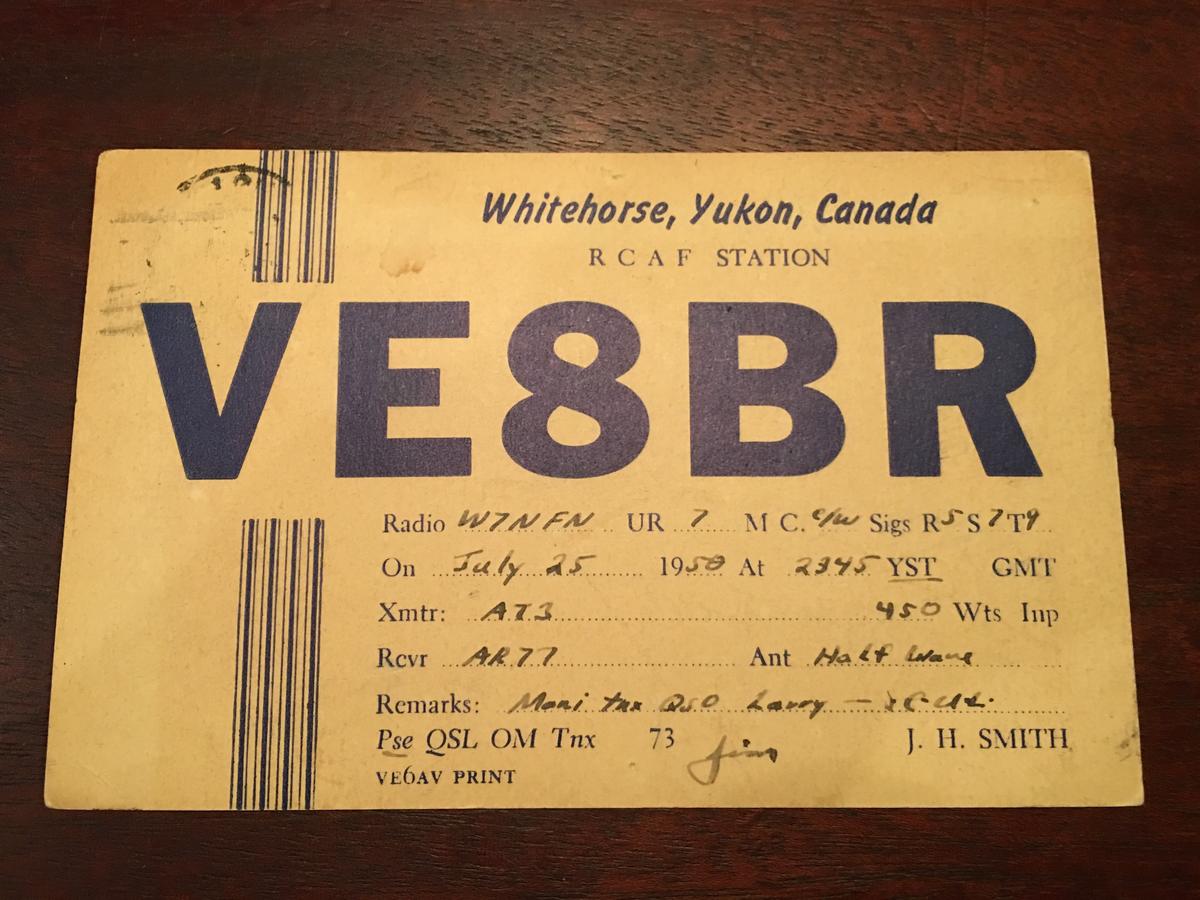 Whitehorse, Yukon, Canada
R C A F STATION
VE8BR
Radio W7NFN UR 7 M C. c/w Sigs R5 S7 T9
On July 25 1950 At 2345 YST GMT
Xmtr: AT3 450 Wts Inp
Rcvr AR77 Ant Half Wave
Remarks: Mani tnx QSO Larry —
Pse QSL OM Tnx 73 Jim J. H. SMITH
VE6AV PRINT